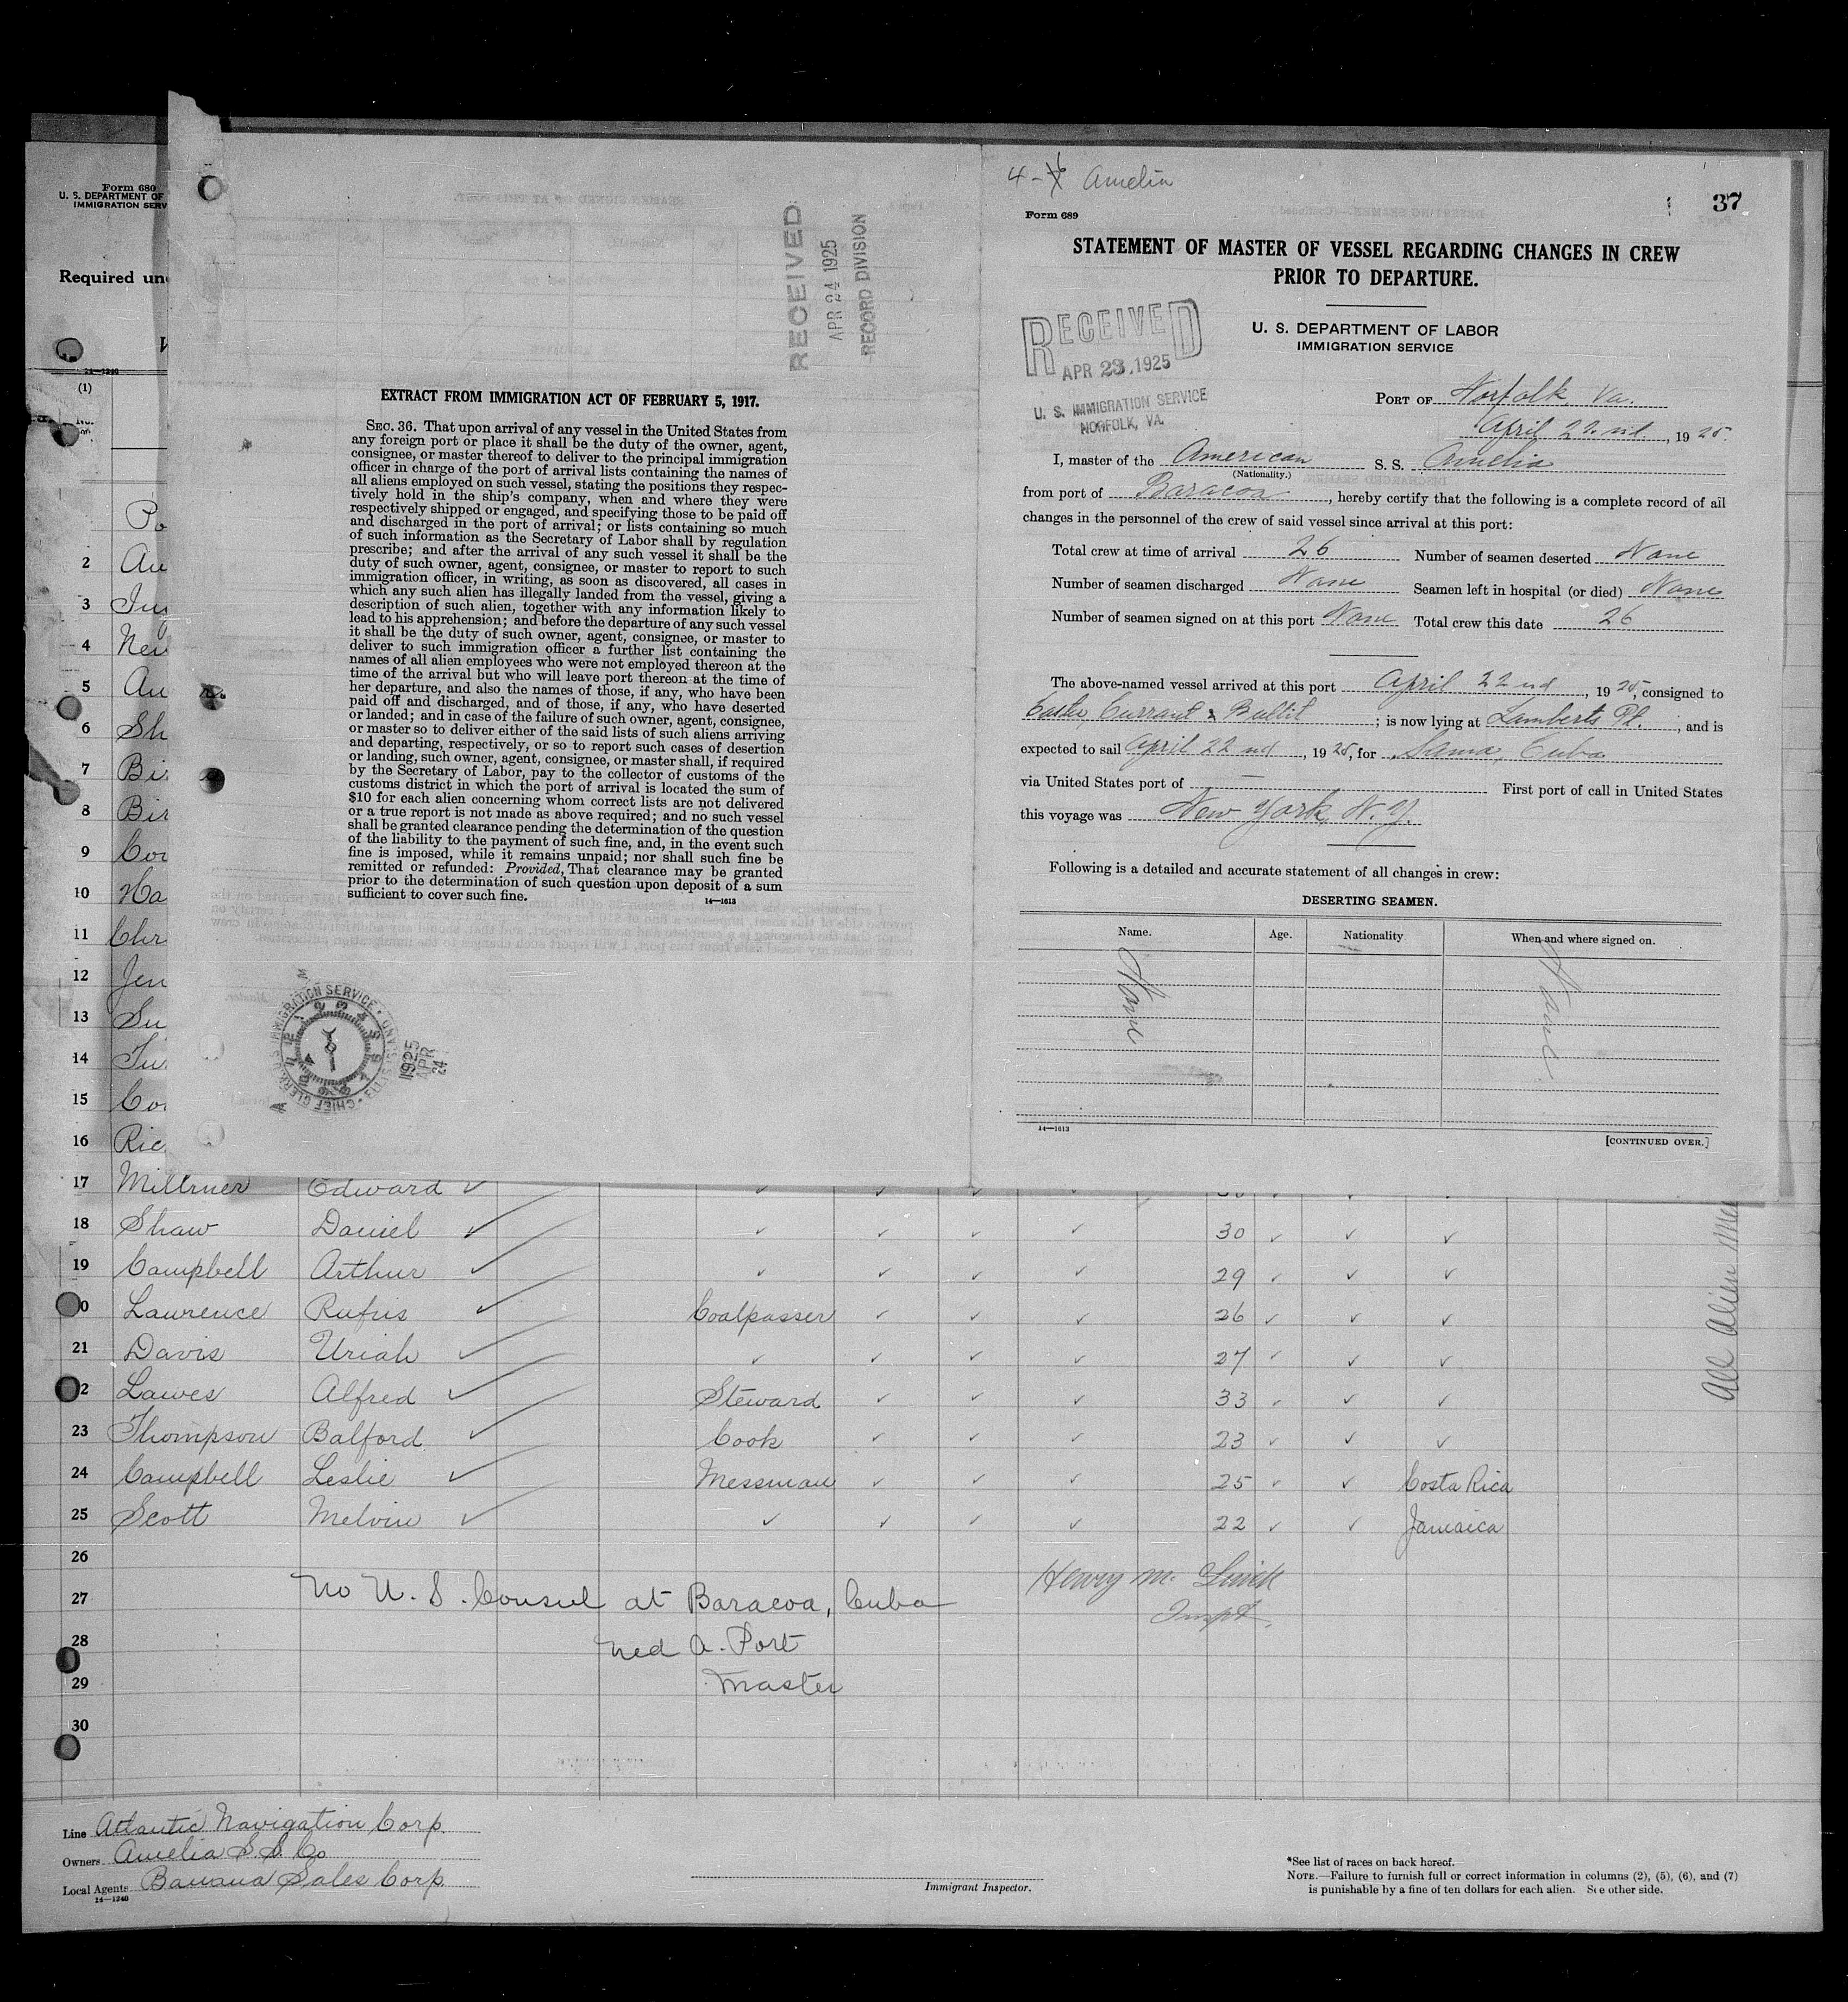 Form 680
U. S. DEPARTMENT OF
IMMIGRATION SERV
Required un
14—1240
(1)
Po
2 Au
3
4
5 Au
6 Sh
7 Bi
8 Bir
9 Cor
10 Ha
11 Chr
12 Jen
13 Su
14
15 Co
16 Ric
RECEIVED
APR 24 1925
RECORD DIVISION
EXTRACT FROM IMMIGRATION ACT OF FEBRUARY 5, 1917.
SEC. 36. That upon arrival of any vessel in the United States from
any foreign port or place it shall be the duty of the owner, agent,
consignee, or master thereof to deliver to the principal immigration
officer in charge of the port of arrival lists containing the names of
all aliens employed on such vessel, stating the positions they respec-
tively hold in the ship's company, when and where they were
respectively shipped or engaged, and specifying those to be paid off
and discharged in the port of arrival; or lists containing so much
of such information as the Secretary of Labor shall by regulation
prescribe; and after the arrival of any such vessel it shall be the
duty of such owner, agent, consignee, or master to report to such
immigration officer, in writing, as soon as discovered, all cases in
which any such alien has illegally landed from the vessel, giving a
description of such alien, together with any information likely to
lead to his apprehension; and before the departure of any such vessel
it shall be the duty of such owner, agent, consignee, or master to
deliver to such immigration officer a further list containing the
names of all alien employees who were not employed thereon at the
time of the arrival but who will leave port thereon at the time of
her departure, and also the names of those, if any, who have been
paid off and discharged, and of those, if any, who have deserted
or landed; and in case of the failure of such owner, agent, consignee,
or master so to deliver either of the said lists of such aliens arriving
and departing, respectively, or so to report such cases of desertion
or landing, such owner, agent, consignee, or master shall, if required
by the Secretary of Labor, pay to the collector of customs of the
customs district in which the port of arrival is located the sum of
$10 for each alien concerning whom correct lists are not delivered
or a true report is not made as above required; and no such vessel
shall be granted clearance pending the determination of the question
of the liability to the payment of such fine, and, in the event such
fine is imposed, while it remains unpaid; nor shall such fine be
remitted or refunded: Provided, That clearance may be granted
prior to the determination of such question upon deposit of a sum
sufficient to cover such fine.
14—1613
IMMIGRATION SERVICE
CHIEF CLERK
1925
APR
24
4- Amelia
37
Form 689
STATEMENT OF MASTER OF VESSEL REGARDING CHANGES IN CREW
PRIOR TO DEPARTURE.
U. S. DEPARTMENT OF LABOR
IMMIGRATION SERVICE
RECEIVED
APR 23 1925
U. S. IMMIGRATION SERVICE
NORFOLK, VA.
PORT OF Norfolk, Va.
April 22nd, 1925.
I, master of the American S. S. Amelia
(Nationality.)
from port of Baracoa, hereby certify that the following is a complete record of all
changes in the personnel of the crew of said vessel since arrival at this port:
Total crew at time of arrival 26 Number of seamen deserted None
Number of seamen discharged None Seamen left in hospital (or died) None
Number of seamen signed on at this port None Total crew this date 26
The above-named vessel arrived at this port April 22nd, 1925, consigned to
Currant & Bullit; is now lying at Lamberts Pt., and is
expected to sail April 22nd, 1925, for Sama, Cuba
via United States port of — First port of call in United States
this voyage was New York, N.Y.
Following is a detailed and accurate statement of all changes in crew:
DESERTING SEAMEN.
Name. Age. Nationality When and where signed on.
None None
14—1613
[CONTINUED OVER.]
17 Millrner Edward
18 Shaw Daniel 30
19 Campbell Arthur 29
20 Lawrence Rufus Coalpasser 26
21 Davis Uriah 27
22 Lawes Alfred Steward 33
23 Thompson Balford Cook 23
24 Campbell Leslie Messman 25 Costa Rica
25 Scott Melvin 22 Jamaica
26
27 No U. S. Consul at Baracoa, Cuba
28 Ned A. Port
29 Master
30
Henry M.
Inspt.
All Alien
Line Atlantic Navigation Corp.
Owners Amelia S.S. Co
Local Agents Banana Sales Corp.
14—1240
Immigrant Inspector.
*See list of races on back hereof.
NOTE.—Failure to furnish full or correct information in columns (2), (5), (6), and (7)
is punishable by a fine of ten dollars for each alien. See other side.